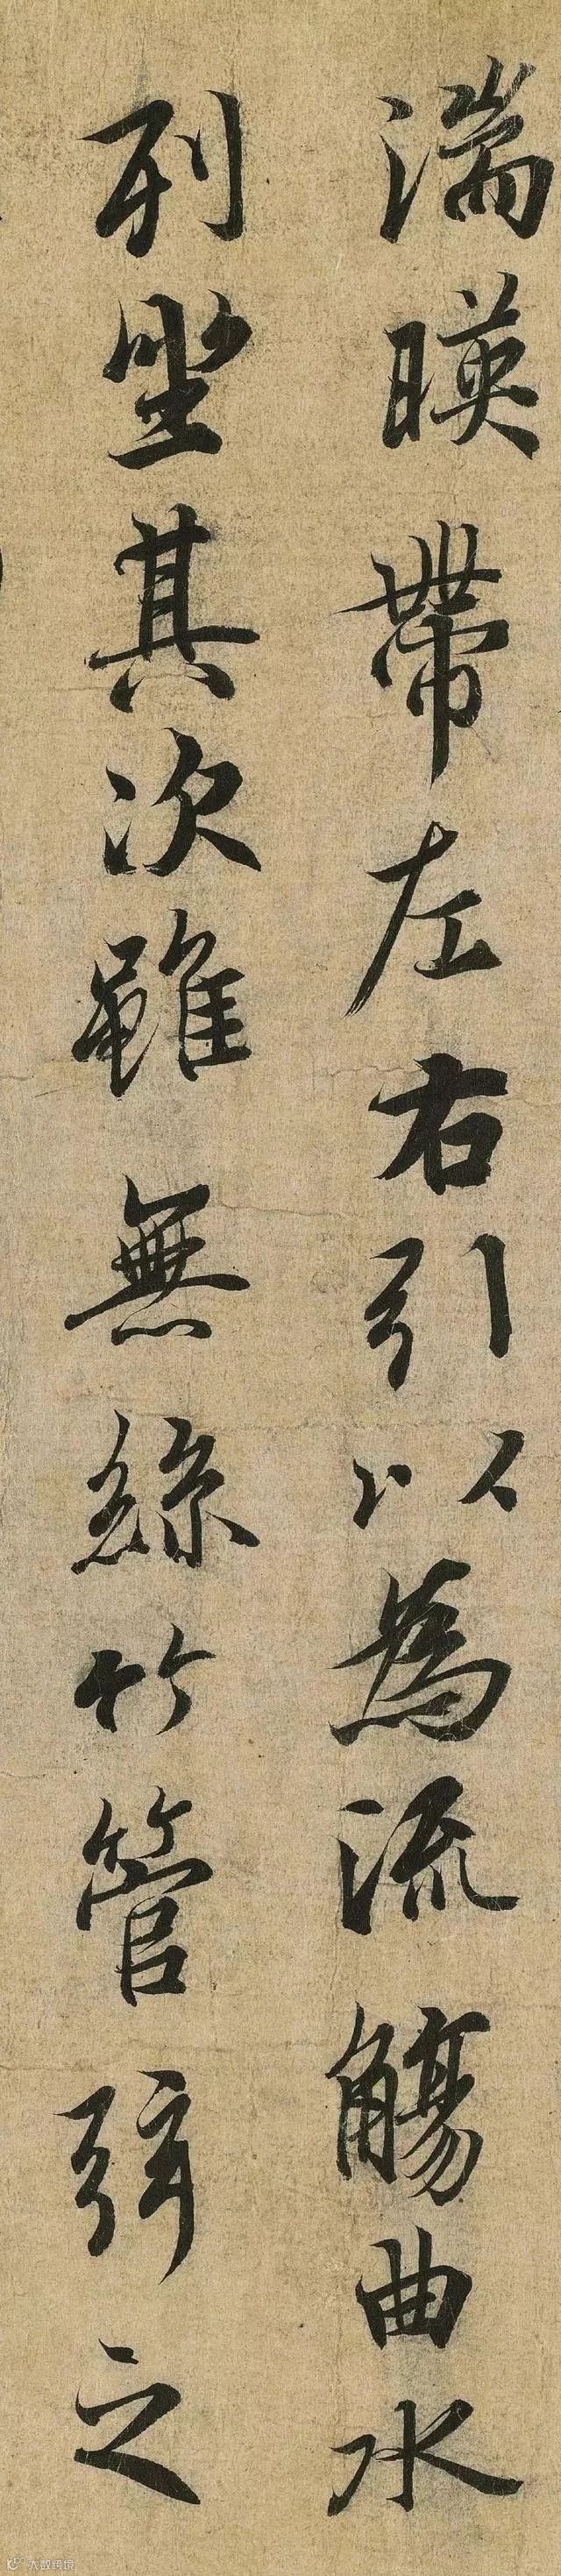 湍暎帶左右引以為流觴曲水
列坐其次雖無絲竹管弦之
大數跨境